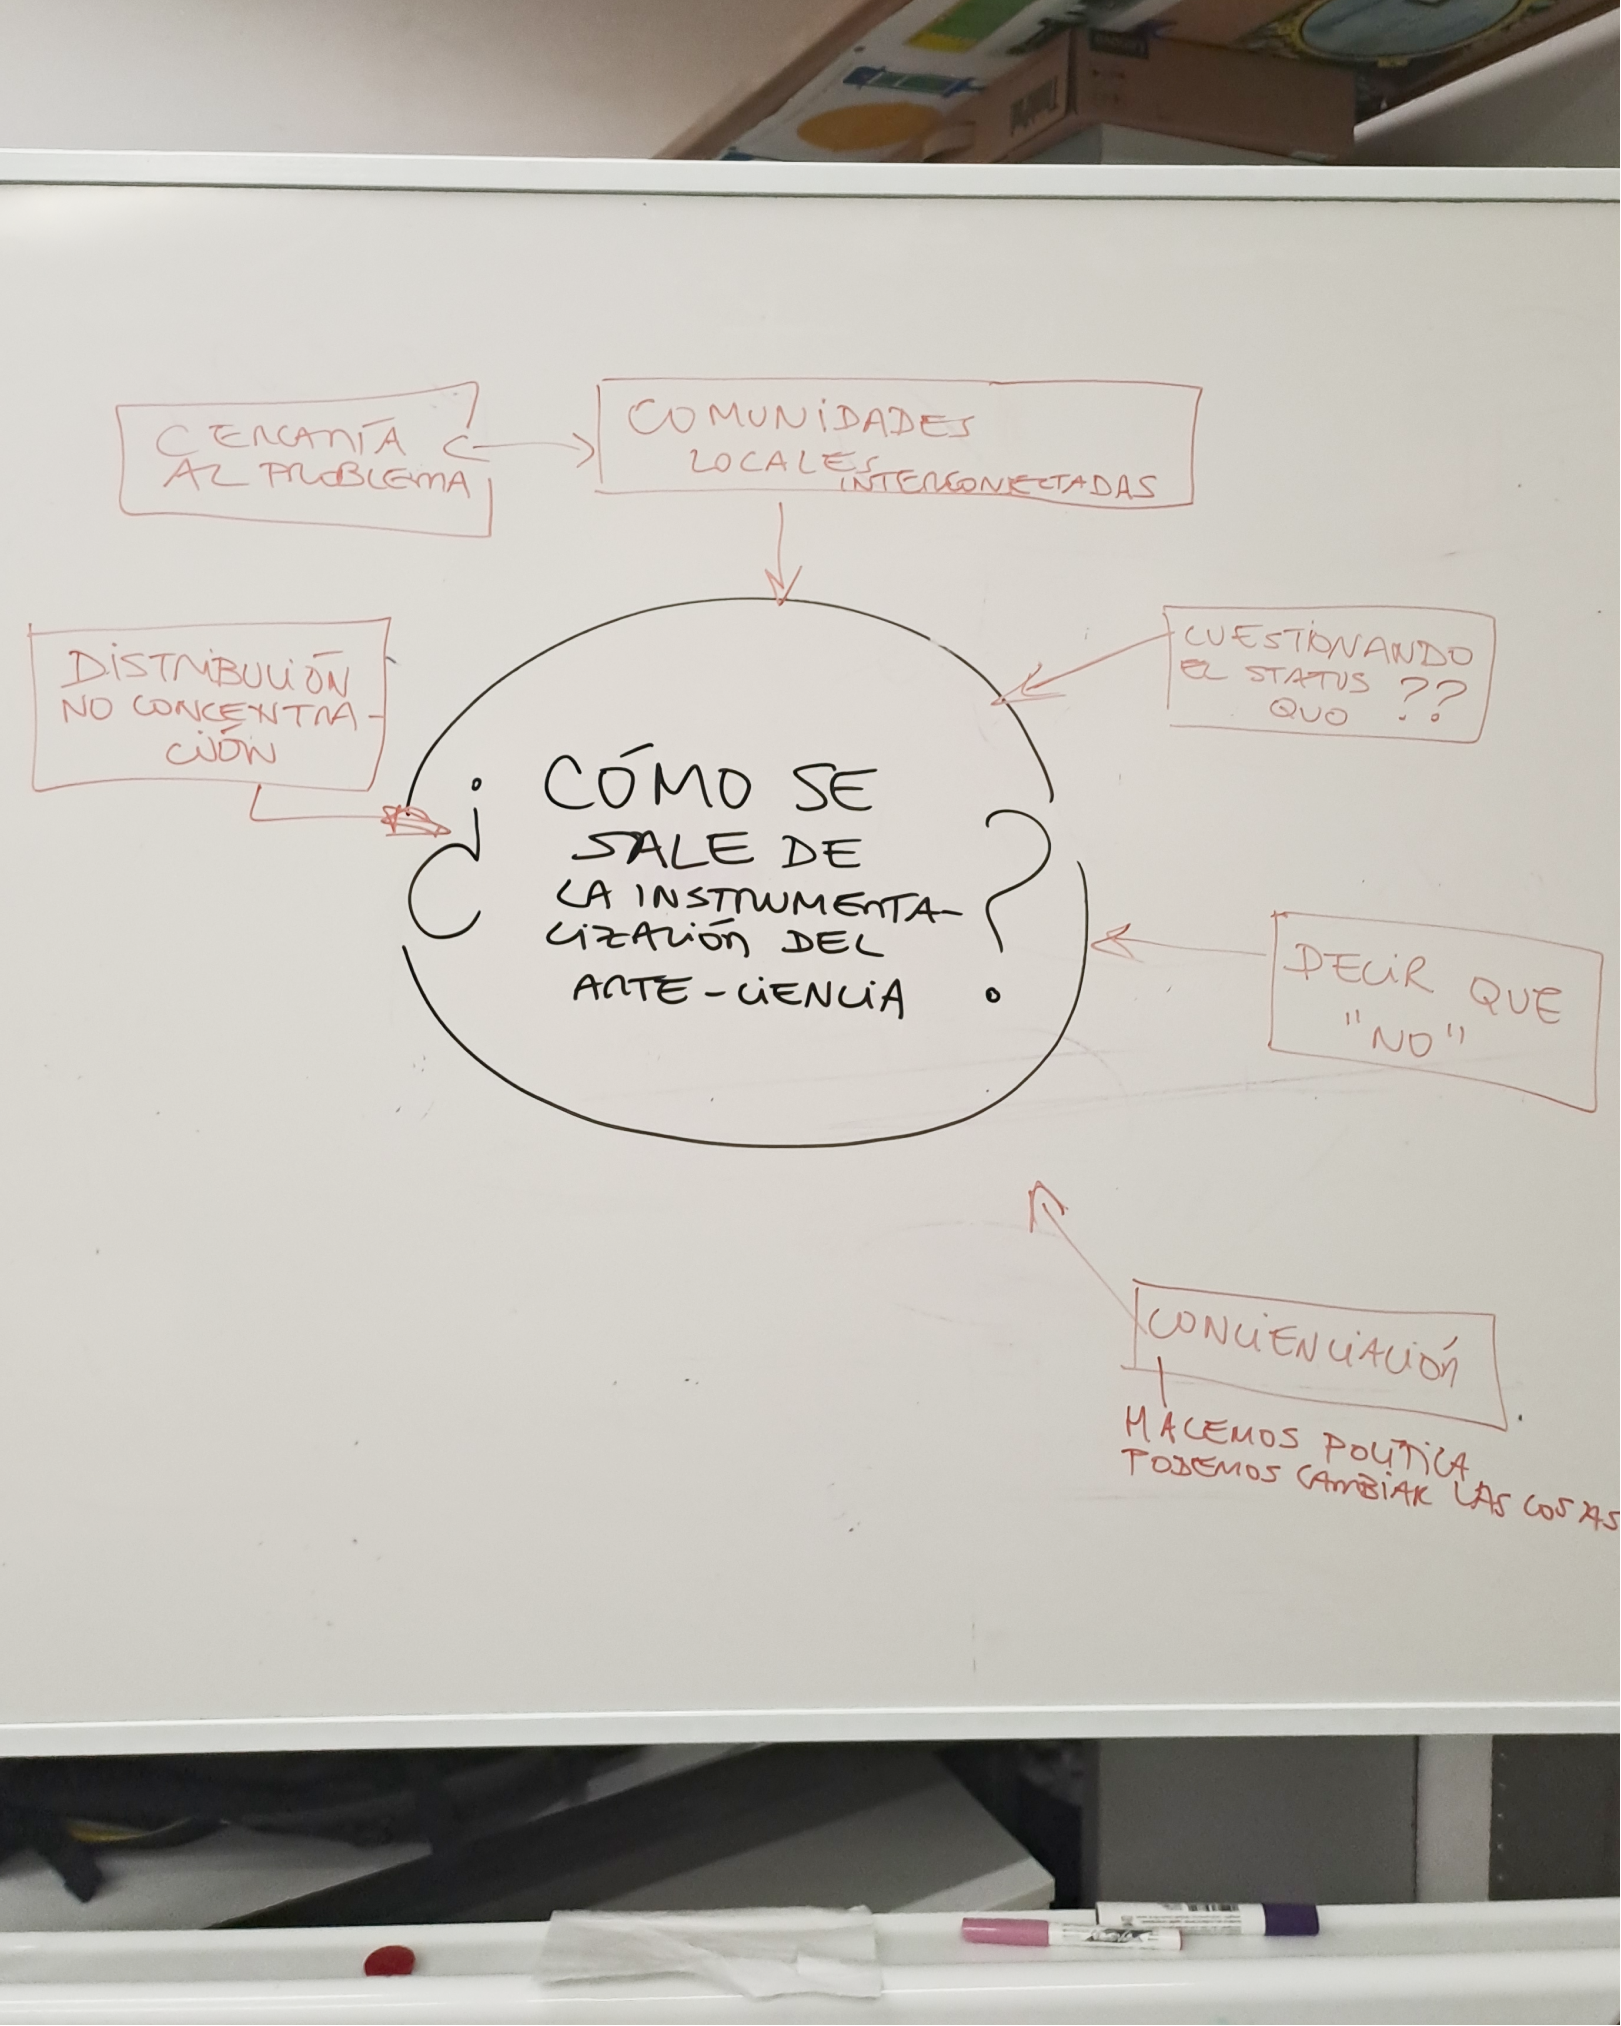 CERCANÍA
AL PROBLEMA
COMUNIDADES
LOCALES
INTERCONECTADAS
DISTRIBUCIÓN
NO CONCENTRA-
CIÓN
CUESTIONANDO
EL STATUS ??
QUO
¿CÓMO SE
SALE DE
LA INSTRUMENTA-
LIZACIÓN DEL
ARTE-CIENCIA?
DECIR QUE
"NO"
CONCIENCIACIÓN
HACEMOS POLÍTICA
PODEMOS CAMBIAR LAS COSAS